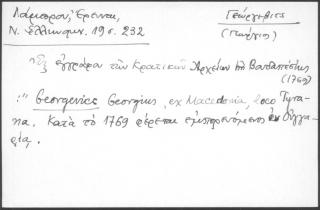 Λάμπρου, Έρευναι,
Ν. Ελληνομν. 19 σ. 232
Γεώργεβιτς
(Γεώργιος)
Εξ εγγράφου των Κρατικών Αρχείων της Βουδαπέστης
(1769)
:" Georgevics Georgius, ex Macedonia, loco Tyrna-
va. Κατά το 1769 φέρεται εμπορευόμενος εν Ουγγα-
ρία.